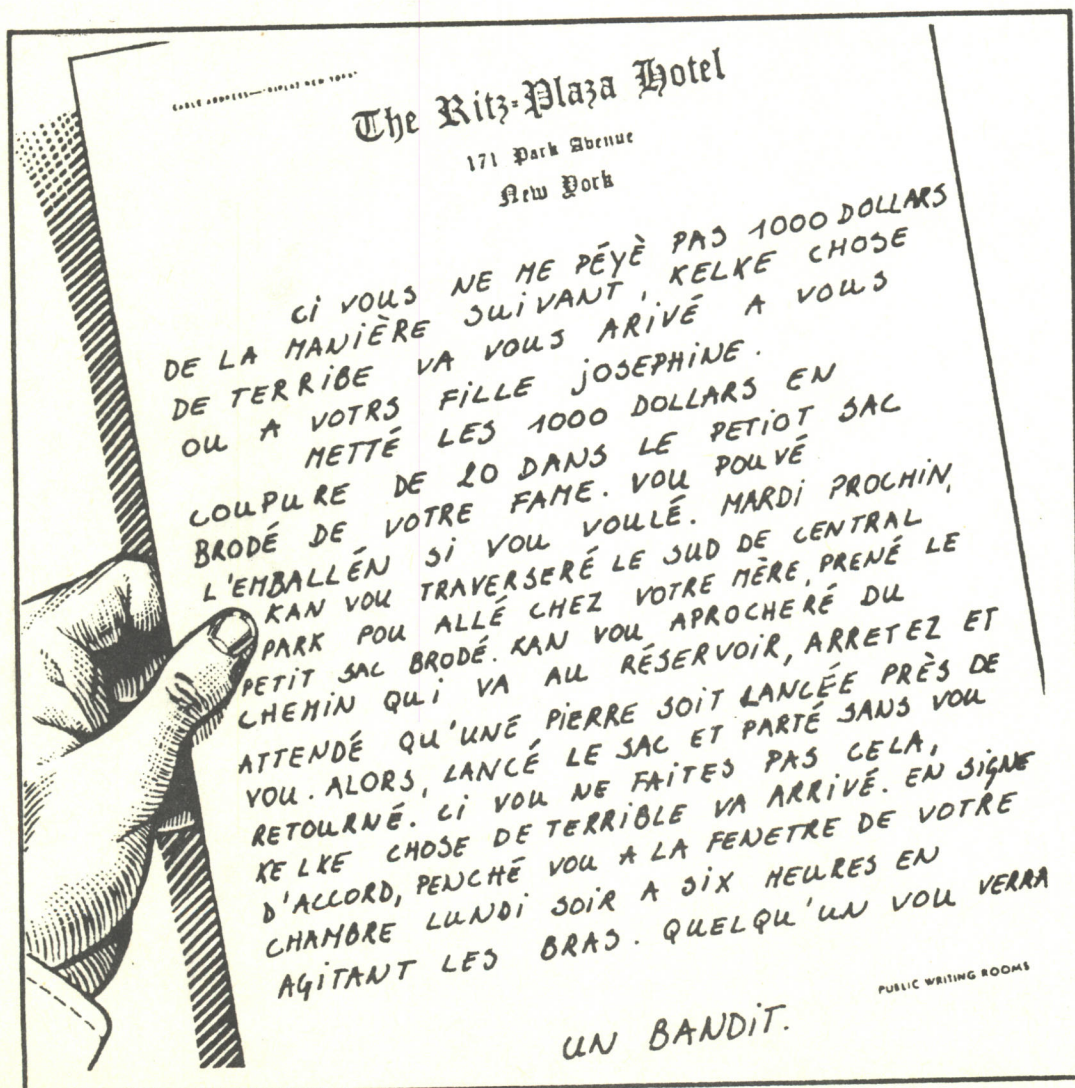 CABLE ADDRESS—"RIPLAZ NEW YORK"
The Ritz-Plaza Hotel
171 Park Avenue
New York
CI VOUS NE ME PÉYÈ PAS 1000 DOLLARS
DE LA MANIÈRE SUIVANT, KELKE CHOSE
DE TERRIBE VA VOUS ARIVÉ A VOUS
OU A VOTRS FILLE JOSEPHINE.
METTÉ LES 1000 DOLLARS EN
COUPURE DE 20 DANS LE PETIOT SAC
BRODÉ DE VOTRE FAME. VOU POUVÉ
L'EMBALLÉN SI VOU VOULÉ. MARDI PROCHIN,
KAN VOU TRAVERSERÉ LE SUD DE CENTRAL
PARK POU ALLÉ CHEZ VOTRE MÈRE, PRENÉ LE
PETIT SAC BRODÉ. KAN VOU APROCHERÉ DU
CHEMIN QUI VA AU RÉSERVOIR, ARRETEZ ET
ATTENDÉ QU'UNE PIERRE SOIT LANCÉE PRÈS DE
VOU. ALORS, LANCÉ LE SAC ET PARTÉ SANS VOU
RETOURNÉ. CI VOU NE FAITES PAS CELA,
KELKE CHOSE DE TERRIBLE VA ARRIVÉ. EN SIGNE
D'ACCORD, PENCHÉ VOU A LA FENETRE DE VOTRE
CHAMBRE LUNDI SOIR A SIX HEURES EN
AGITANT LES BRAS. QUELQU'UN VOU VERRA
PUBLIC WRITING ROOMS
UN BANDIT.